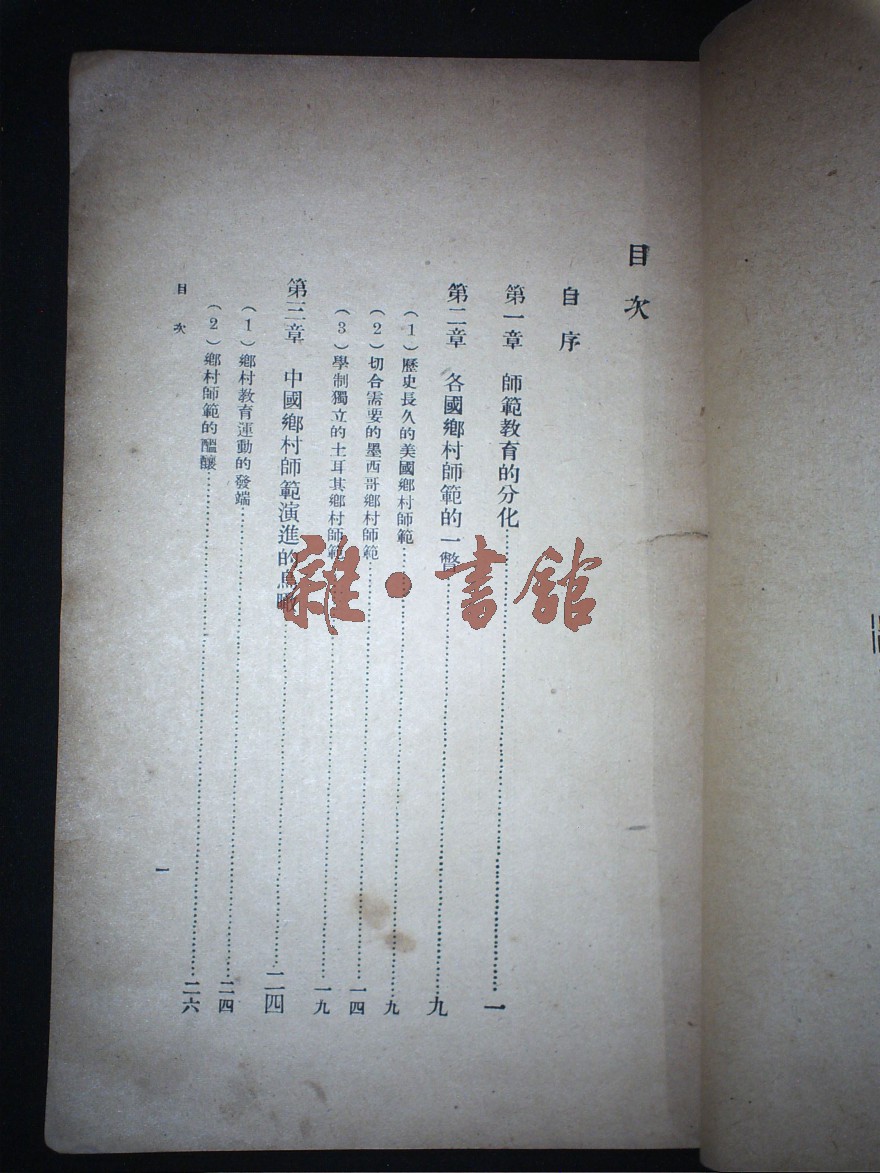 目次
自序
第一章 師範教育的分化……一
第二章 各國鄉村師範的一瞥……九
(1)歷史長久的美國鄉村師範……九
(2)切合需要的墨西哥鄉村師範……一四
(3)學制獨立的土耳其鄉村師範……一九
第三章 中國鄉村師範演進的鳥瞰……二四
(1)鄉村教育運動的發端……二四
(2)鄉村師範的醞釀……二六
目次
一
雜·書館